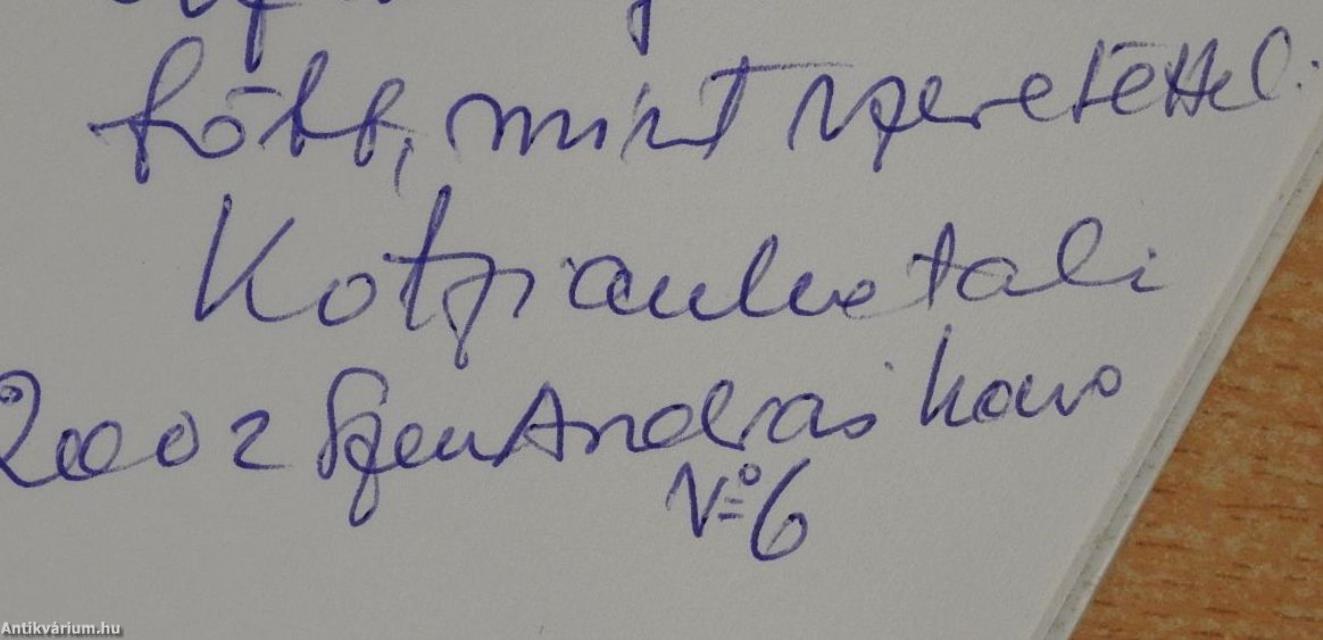 több, mint szeretettel.
Kotzian Katali
2002 SzentAndrás hava
No 6
Antikvárium.hu